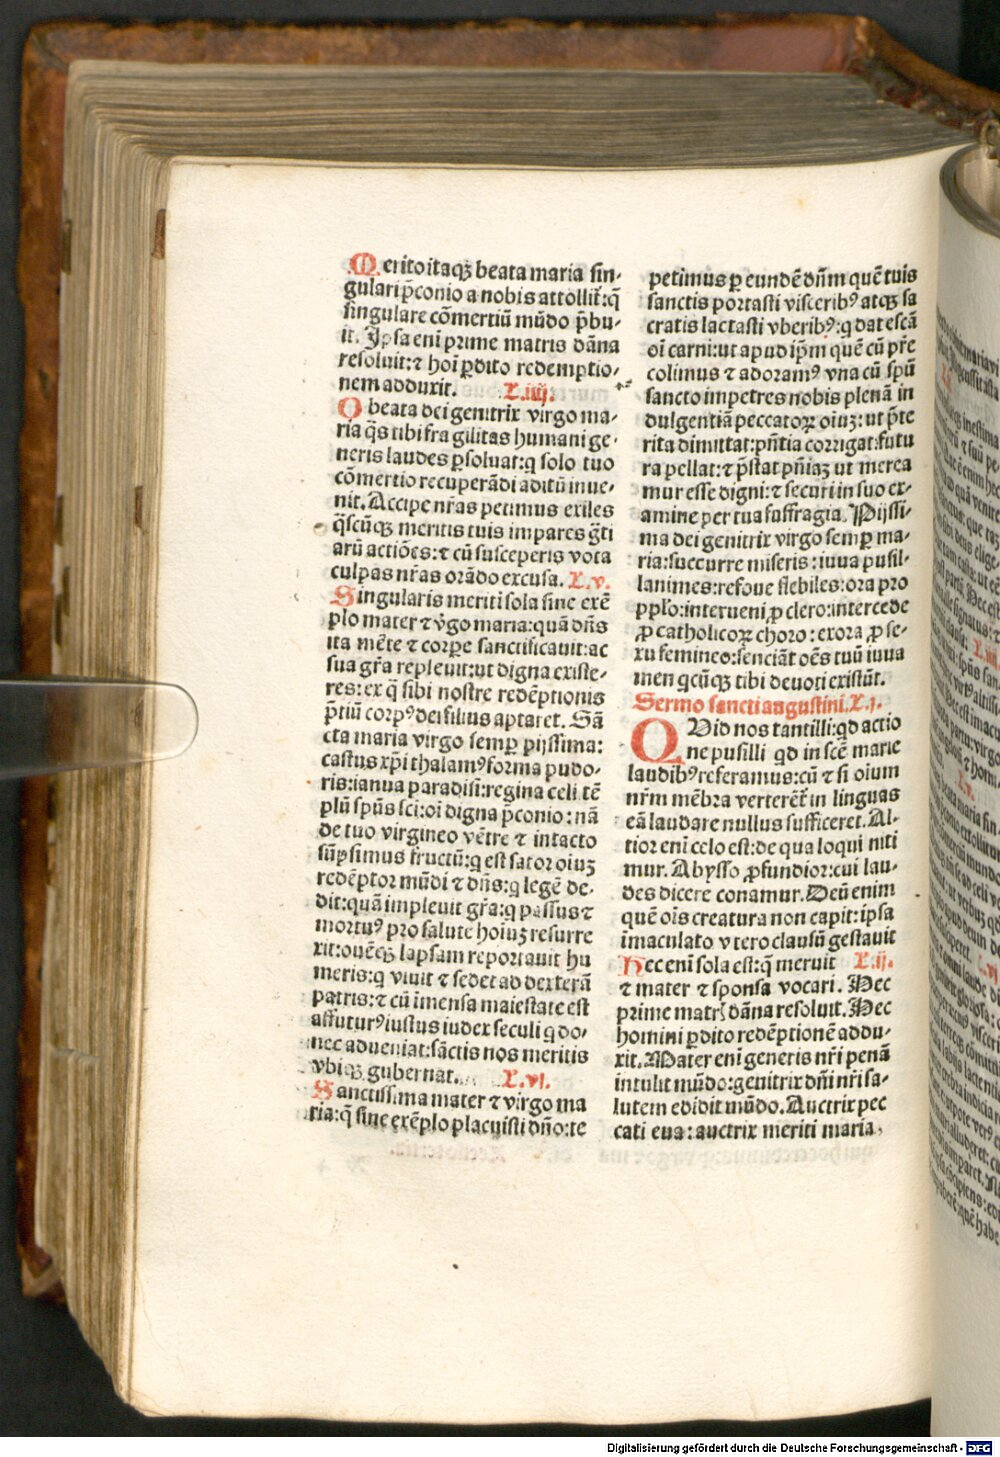 Merito itaqꝫ beata maria sin-
gulari p̄conio a nobis attollit̄: q̄
singulare cōmertiū mūdo p̄bu-
it. Ipsa eni prime matris dāna
resoluit: ⁊ hoī ꝑdito redemptio-
nem adduxit. L.iiij.
O beata dei genitrix virgo ma-
ria q̄s tibi fragilitas humani ge-
neris laudes ꝑsoluat: q̨ solo tuo
cōmertio recuperādi aditū inue-
nit. Accipe nr̄as petimus exiles
q̄scūqꝫ meritis tuis impares gr̄ti
arū actiōes: ⁊ cū susceperis vota
culpas nr̄as orādo excusa. L.v.
Singularis meriti sola sine exē
plo mater ⁊ v̄go maria: quā dn̄s
ita mēte ⁊ corꝑe sanctificauit: ac
sua gr̄a repleuit: ut digna existe-
res: ex q̄ sibi nostre redēptionis
p̄tiū corpꝰ dei filius aptaret. Sā
cta maria virgo semꝑ pijssima:
castus xp̄i thalamꝰ forma pudo-
ris: ianua paradisi: regina celi tē
plū sp̄us sci: oī digna p̄conio: nā
de tuo virgineo vētre ⁊ intacto
sūpsimus fructū: q̨ est sator oiuꝫ
redēptor mūdi ⁊ dn̄s: q̨ legē de-
dit: quā impleuit gr̄a: q̨ passus ⁊
mortuꝰ pro salute hoiuꝫ resurre
xit: ouēqꝫ lapsam reportauit hu
meris: q̨ viuit ⁊ sedet ad dexterā
patris: ⁊ cū imensa maiestate est
affuturꝰ iustus iudex seculi q̨ do-
nec adueniat: sāctis nos meritis
vbiqꝫ gubernat. L.vi.
Sanctissima mater ⁊ virgo ma
ria: q̄ sine exēplo placuisti dn̄o: te
petimus ꝑ eundē dn̄m quē tuis
sanctis portasti visceribꝰ atqꝫ sa
cratis lactasti vberibꝰ: q̨ dat escā
oī carni: ut apud ip̄m quē cū pr̄e
colimus ⁊ adoramꝰ vna cū sp̄u
sancto impetres nobis plenā in
dulgentiā peccatoꝝ oiuꝫ: ut p̄te
rita dimittat: pn̄tia corrigat: futu
ra pellat: ⁊ p̄stat pn̄iaꝫ ut merea
mur esse digni: ⁊ securi in suo ex-
amine per tua suffragia. Pijssi-
ma dei genitrix virgo semꝑ ma-
ria: succurre miseris: iuua pusil-
lanimes: refoue flebiles: ora pro
pplo: interueni ꝓ clero: intercede
ꝓ catholicoꝝ choro: exora ꝓ se-
xu femineo: senciāt oēs tuū iuua
men q̨cūqꝫ tibi deuoti existūt.
Sermo sancti augustini. L.j.
QVid nos tantilli: qd actio
ne pusilli qd in scē marie
laudibꝰ referamus: cū ⁊ si oium
nr̄m mēbra verterēt̄ in linguas
eā laudare nullus sufficeret. Al-
tior eni celo est: de qua loqui niti
mur. Abysso ꝓfundior: cui lau-
des dicere conamur. Deū enim
quē oīs creatura non capit: ipsa
īmaculato vtero clausū gestauit
Hec eni sola est: q̄ meruit L.ij.
⁊ mater ⁊ sponsa vocari. Hec
prime matrꝭ dāna resoluit. Hec
homini ꝑdito redēptionē addu-
xit. Mater eni generis nr̄i penā
intulit mūdo: genitrix dn̄i nr̄i sa-
lutem edidit mūdo. Auctrix pec
cati eua: auctrix meriti maria,
Digitalisierung gefördert durch die Deutsche Forschungsgemeinschaft - DFG